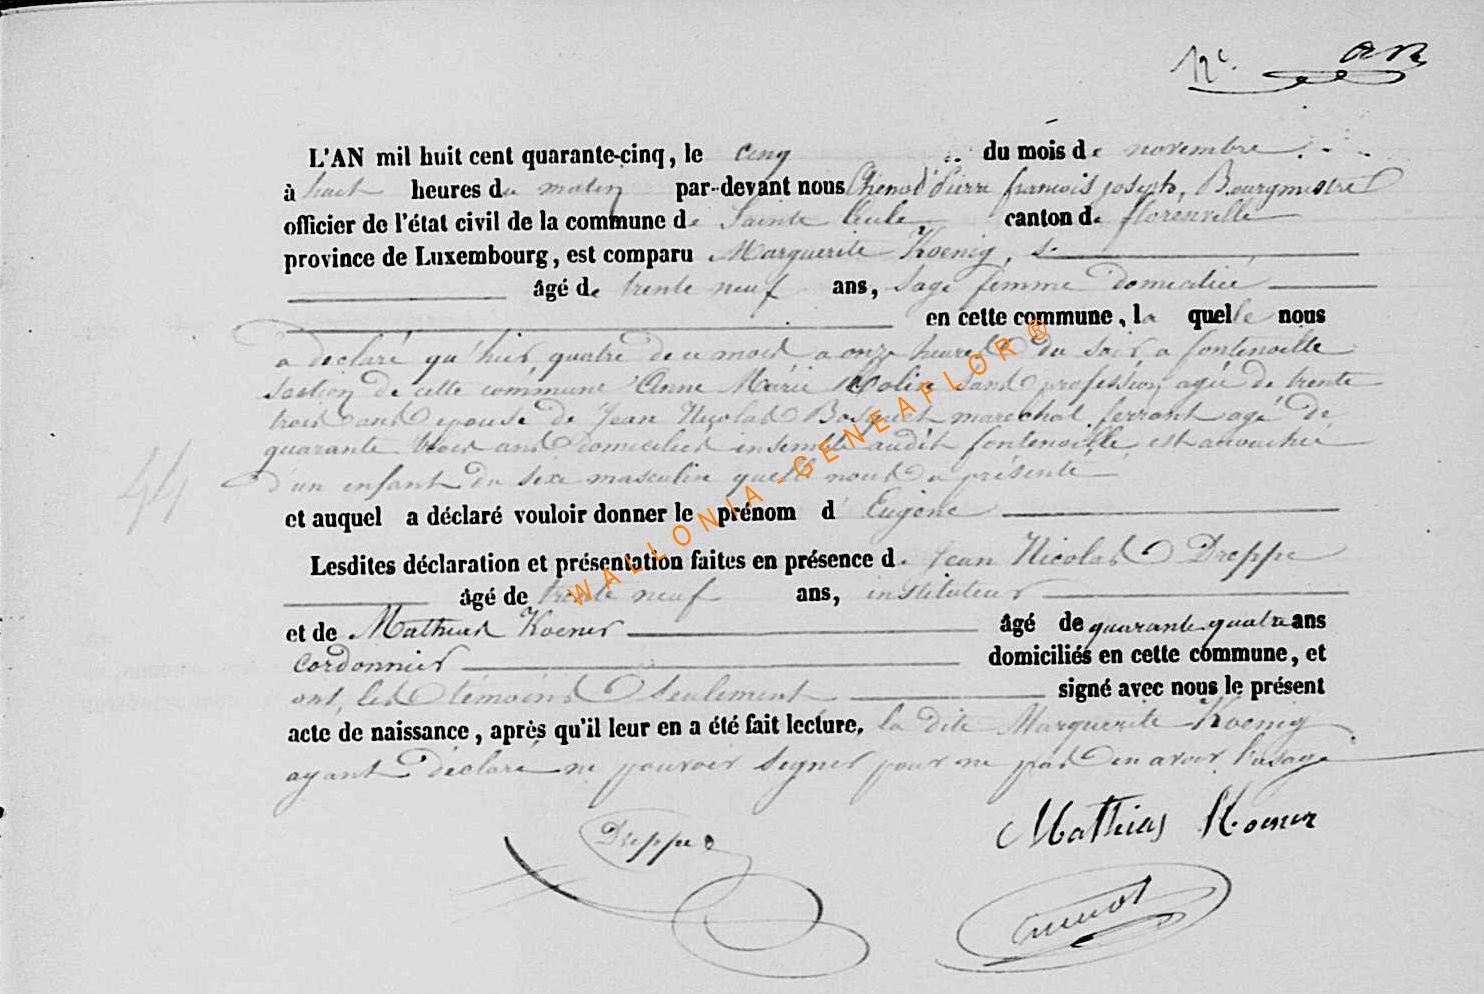 L'AN mil huit cent quarante-cinq, le cinq du mois de novembre
à huit heures du matin par-devant nous Chenot Pierre françois joseph, Bourgmestre
officier de l'état civil de la commune de Sainte Cécile canton de florenville
province de Luxembourg, est comparu Marguerite Koenig,
âgé de trente neuf ans, sage femme domiciliée
en cette commune, la quelle nous
a déclaré qu'hier, quatre de ce mois a onze heures du soir, a fontenoille
section de cette commune Anne Marie sans profession, agée de trente
trois ans épouse de Jean Nicolas Bosquet marechal ferrant agé de
quarante trois ans domiciliés ensemble audit fontenoille, est accouchée
d'un enfant du sexe masculin quelle nous a présenté
44
et auquel a déclaré vouloir donner le prénom d'Eugène
Lesdites déclaration et présentation faites en présence de Jean Nicolas Dreppe
âgé de trente neuf ans, instituteur
et de Mathias Koener âgé de quarante quatre ans
cordonnier domiciliés en cette commune, et
ont, les témoins seulement signé avec nous le présent
acte de naissance, après qu'il leur en a été fait lecture, la dite Marguerite Koenig
ayant déclaré ne pouvoir signer pour ne pas en avoir l'usage
Dreppe
Mathias Koener
Chenot
WALLONIA-GENEAFLOR®